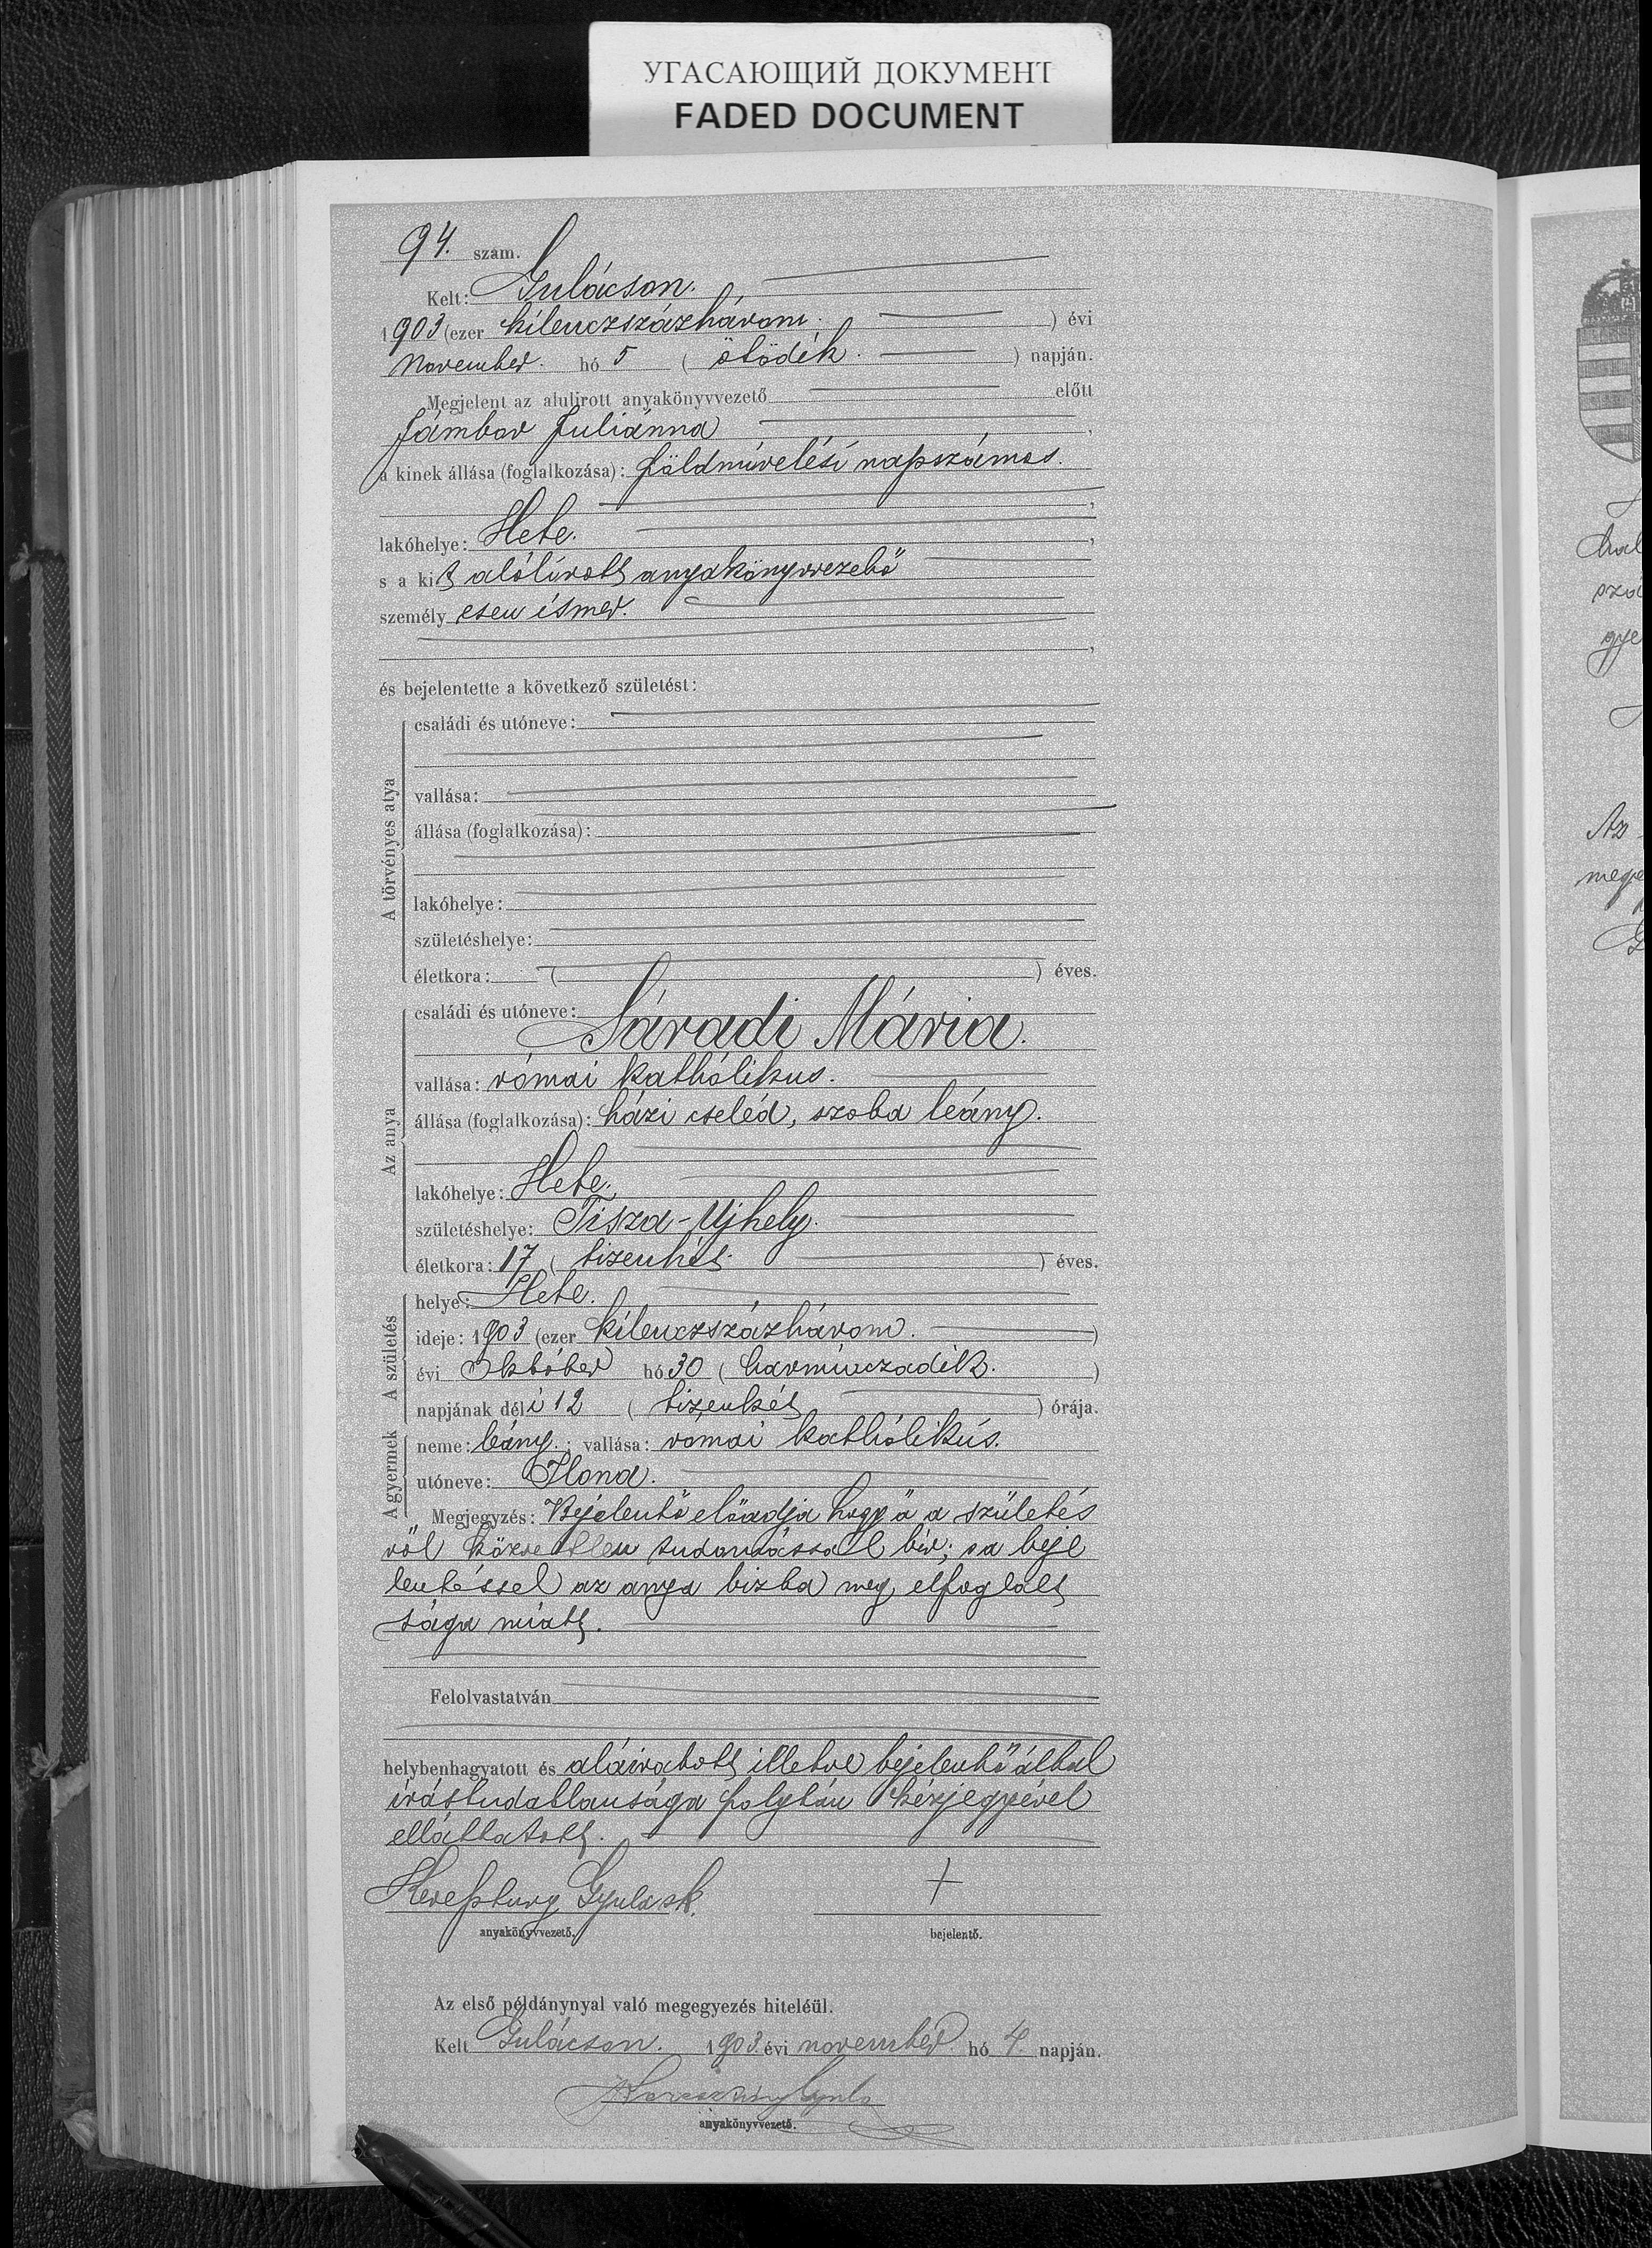 УГАСАЮЩИЙ ДОКУМЕНТ
FADED DOCUMENT
94. szám.
Kelt: Gulácson.
1903 (ezer kilenczszázhárom. ) évi
November. hó 5 ( ötödik. ) napján.
Megjelent az alulirott anyakönyvvezető előtt
Jámbor Juliánna ,
a kinek állása (foglalkozása): földmivelési napszámos.
,
lakóhelye: Hete. ,
s a kit alólírott anyakönyvvezető
személy esen ismer.
,
és bejelentette a következő születést:
A törvényes atya
családi és utóneve:
vallása:
állása (foglalkozása):
lakóhelye:
születéshelye:
életkora: ( ) éves.
Az anya
családi és utóneve:
Sáradi Mária.
vallása: római katholikus.
állása (foglalkozása): házi cseléd, szoba leány.
lakóhelye: Hete.
születéshelye: Tisza-Ujhely.
életkora: 17 ( tizenhét. ) éves.
A születés
helye: Hete.
ideje: 1903 (ezer kilenczszázhárom. )
évi Október hó 30 ( harminczadik. )
napjának déli 12 ( tizenkét ) órája.
A gyermek
neme: leány. ; vallása: romai katholikus.
utóneve: Ilona.
Megjegyzés: Bejelentő előadja hogy ő a születés
ről közvetlen tudomással bir; s a beje
lentéssel az anya bizta meg, elfoglalt
sága miatt.
Felolvastatván
helybenhagyatott és aláiratott illetve bejelentő által
irástudatlansága folytán kézjegyével
elláttatott.
Gyula sk. +
anyakönyvvezető. bejelentő.
Az első példánynyal való megegyezés hiteléül.
Kelt Gulácson. 1903 évi november. hó 4. napján.
Gyula
anyakönyvvezető.
hal
szá
gye
Az
mege